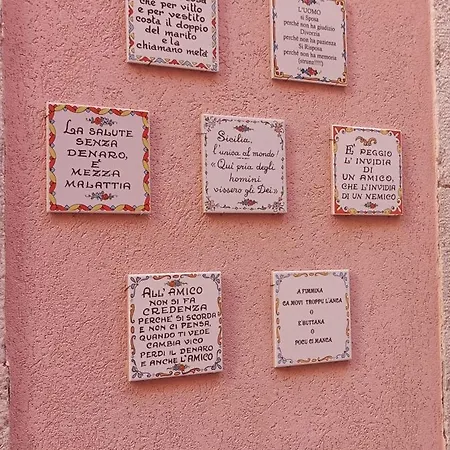 che per vitto
e per vestito
costa il doppio
del marito
e la
chiamano metà
L'UOMO
si Sposa
perché non ha giudizio
Divorzia
perché non ha pazienza
Si Risposa
perché non ha memoria
LA SALUTE
SENZA
DENARO,
E'
MEZZA
MALATTIA
Sicilia,
l'unica al mondo!
«Qui pria degli
homini
vissero gli Dei»
E' PEGGIO
L'INVIDIA
DI UN
AMICO,
CHE L'INVIDIA
DI UN NEMICO
ALL'AMICO
NON SI FA
CREDENZA
PERCHÈ SI SCORDA
E NON CI PENSA,
QUANDO TI VEDE
CAMBIA VICO
PERDI IL DENARO
E ANCHE L'AMICO
A FIMMINA
CA MOVI TROPPU L'ANCA
O
E' BUTTANA
O
POCU CI MANCA